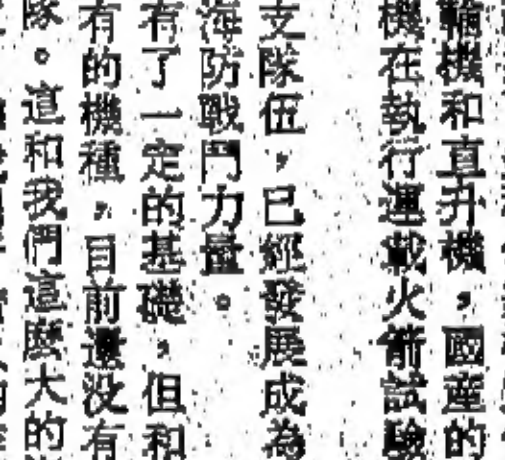 輪機和直升機，國產的
機在執行運載火箭試驗
支隊伍，已經發展成為
海防戰鬥力量。
有了一定的基礎，但和
有的機種，目前還没有
隊。這和我們這麽大的